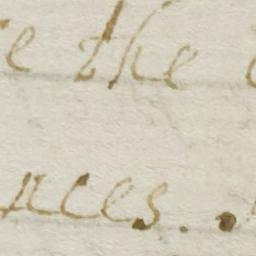 e the
nces..